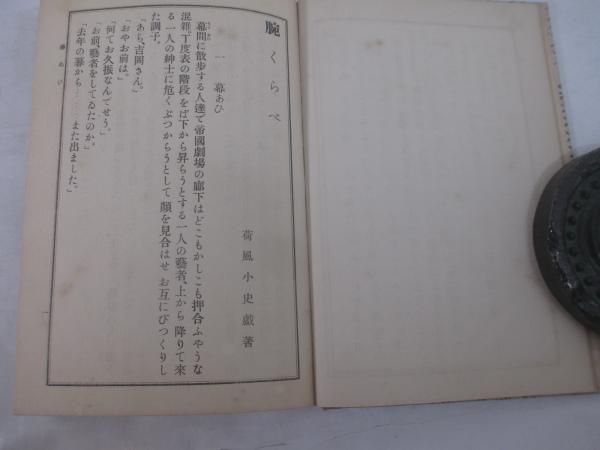 腕くらべ
荷風小史戯著
一 幕あひ
幕間に散歩する人達で帝國劇場の廊下はどこもかしこも押合ふやうな
混雑。丁度表の階段をば下から昇らうとする一人の藝者、上から降りて來
る一人の紳士に危くぶつからうとして顔を見合はせ お互にびつくりし
た調子。
「あら、吉岡さん。」
「おやお前は。」
「何てお久振なんでせう。」
「お前、藝者をしてゐたのか。」
「去年の暮から……また出ました。」
幕あひ
一